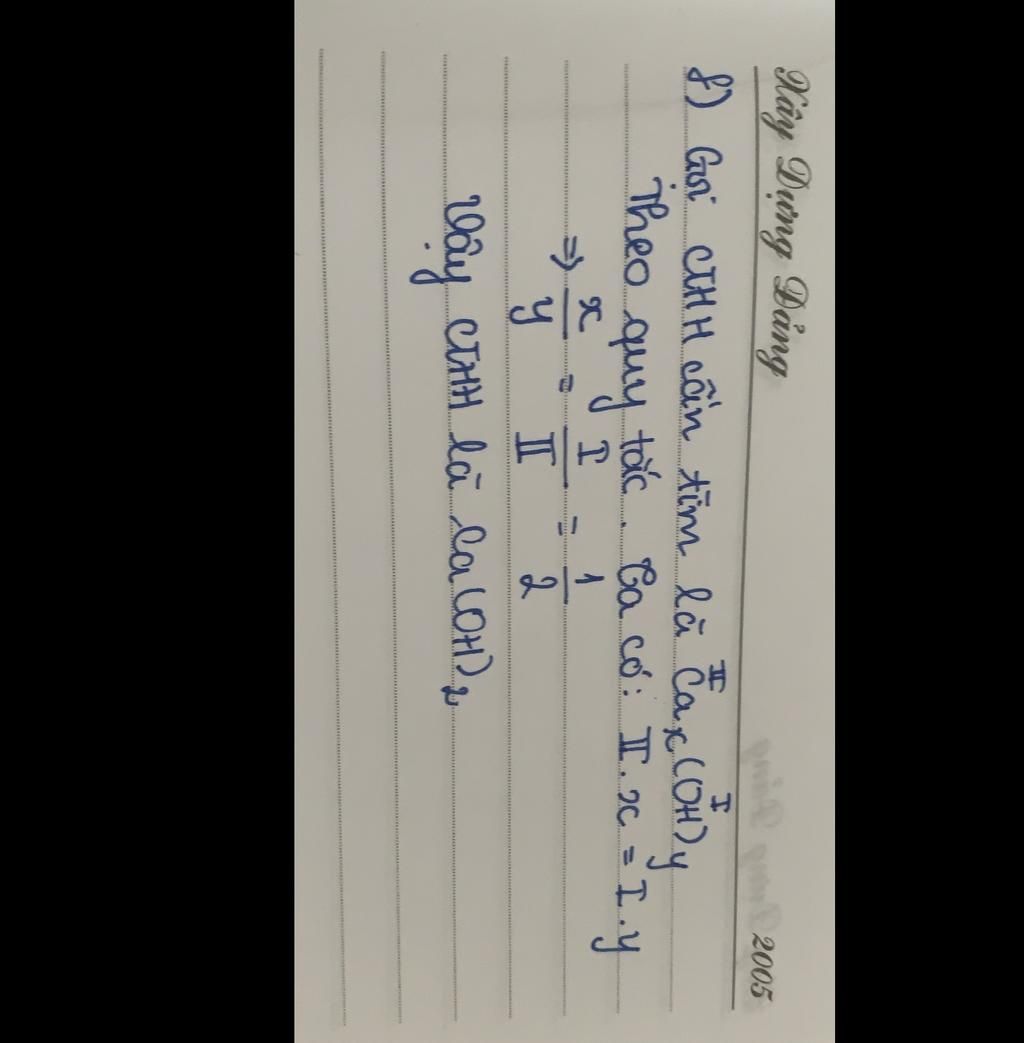 Xây Dựng Đảng 2005
f) Gọi CTHH cần tìm là Caₓ(OH)y
II I
Theo quy tắc. Ta có: II.x = I.y
=> x/y = I/II = 1/2
Vậy CTHH là Ca(OH)₂